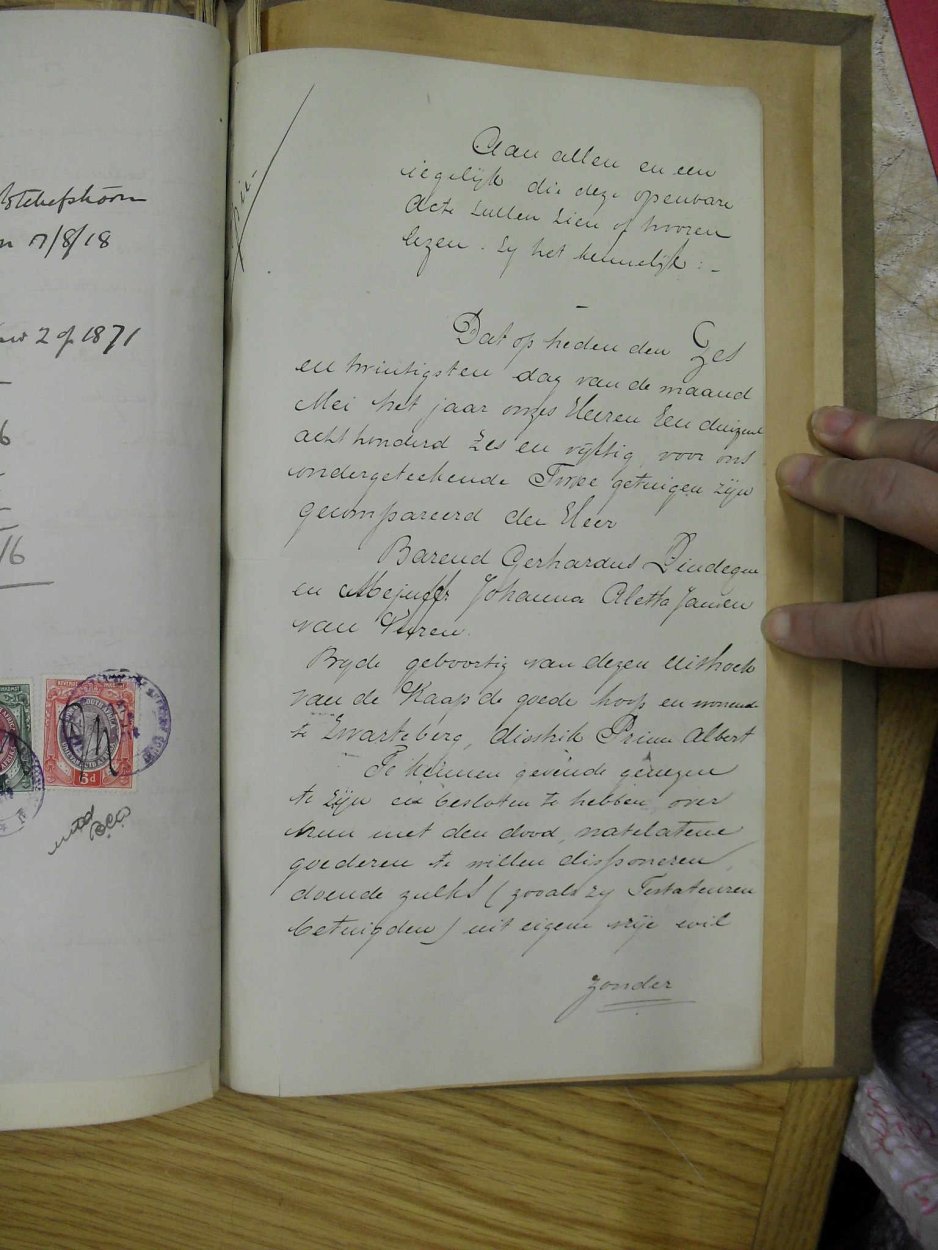 Potchefstroom
17/8/18
2 of 1871
6
16
6d
Aan allen en een
iegelijk die deze openbare
Acte zullen zien of hooren
lezen. Zij het kennelijk:-
Dat op heden den Zes
en twintigsten dag van de maand
Mei het jaar onzes Heeren Een duizend
acht honderd zes en vyftig, voor ons
ondergeteekende Twee getuigen zijn
gecompareerd den Heer
Barend Gerhardus Lindeque
en Mejuffr Johanna Aletta Jansen
van Vuren.
Byde geboortig van dezen uithoek
van de Kaap de goede hoop en wonende
te Zwarteberg, distrik Prins Albert
Te kennen gevende genegen
te zijn en besloten te hebben over
hun met den dood natelatene
goederen te willen disponeren,
doende zulks (zooals zy Testateuren
betuigden) uit eigene vrije wil
zonder